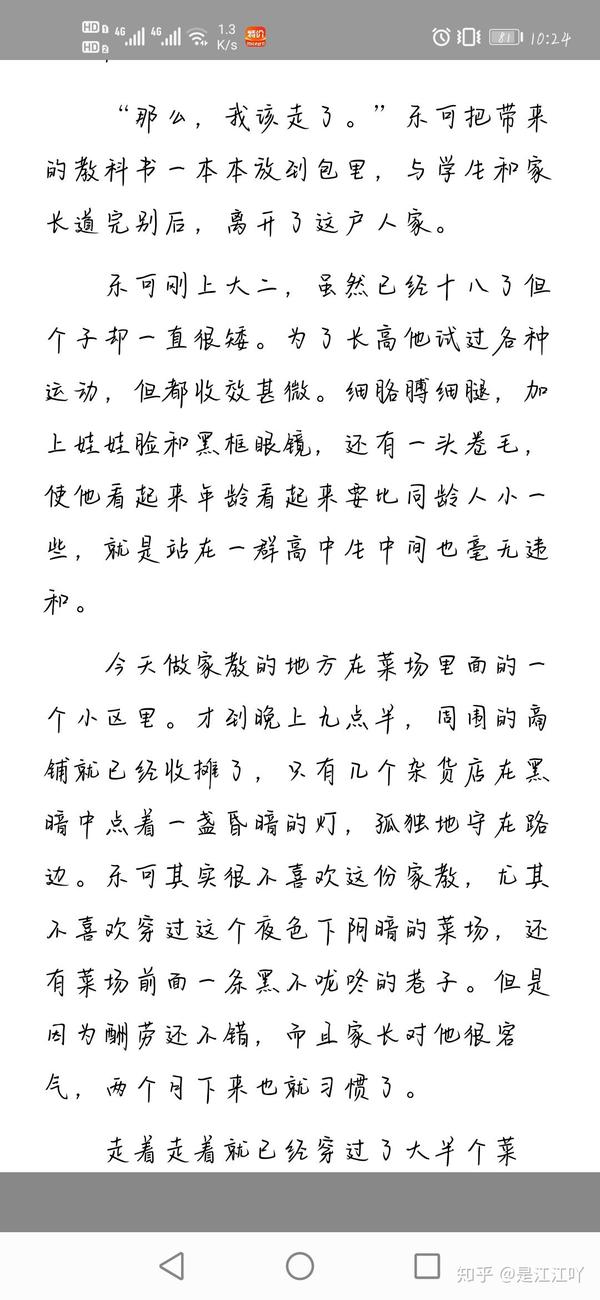 HD 1 4G 4G 1.3 K/s 特价 81 10:24
HD 2
“那么，我该走了。”乐可把带来
的教科书一本本放到包里，与学生和家
长道完别后，离开了这户人家。
乐可刚上大二，虽然已经十八了但
个子却一直很矮。为了长高他试过各种
运动，但都收效甚微。细胳膊细腿，加
上娃娃脸和黑框眼镜，还有一头卷毛，
使他看起来年龄看起来要比同龄人小一
些，就是站在一群高中生中间也毫无违
和。
今天做家教的地方在菜场里面的一
个小区里。才到晚上九点半，周围的商
铺就已经收摊了，只有几个杂货店在黑
暗中点着一盏昏暗的灯，孤独地守在路
边。乐可其实很不喜欢这份家教，尤其
不喜欢穿过这个夜色下阴暗的菜场，还
有菜场前面一条黑不咙咚的巷子。但是
因为酬劳还不错，而且家长对他很客
气，两个月下来也就习惯了。
走着走着就已经穿过了大半个菜
知乎 @是江江吖